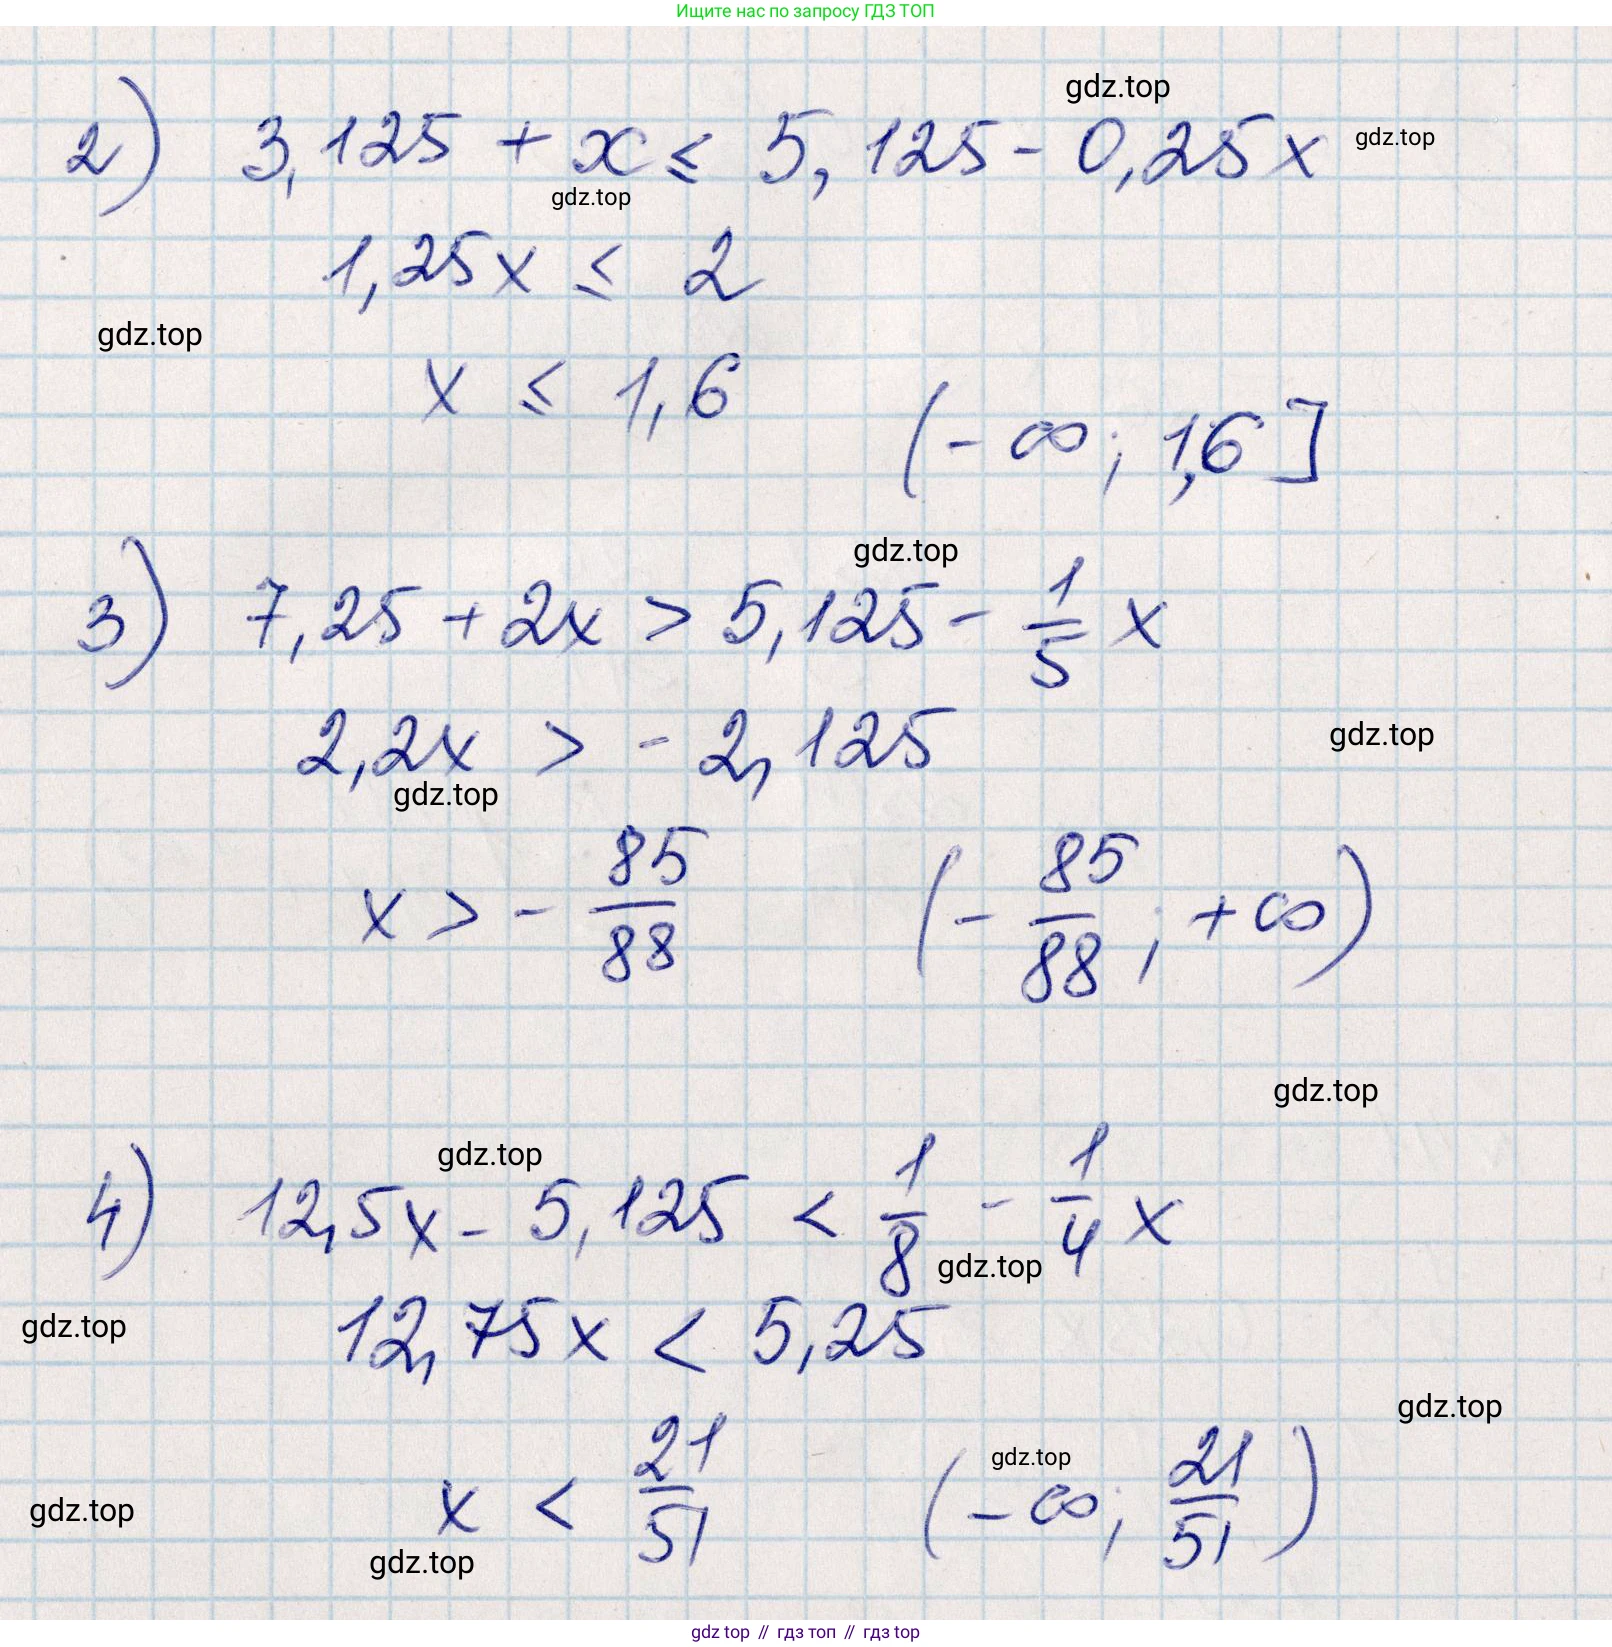 Ищите нас по запросу ГДЗ ТОП
gdz.top
2) 3,125 + x ≤ 5,125 - 0,25x gdz.top
gdz.top
1,25x ≤ 2
gdz.top
x ≤ 1,6
(-∞; 1,6]
gdz.top
3) 7,25 + 2x > 5,125 - 1/5 x
2,2x > -2,125 gdz.top
gdz.top
x > - 85/88 (- 85/88; +∞)
gdz.top
gdz.top
4) 12,5x - 5,125 < 1/8 - 1/4 x
gdz.top
12,75x < 5,25
gdz.top
gdz.top
gdz.top
x < 21/51 (-∞; 21/51)
gdz.top
gdz.top
gdz top // гдз топ // гдз top